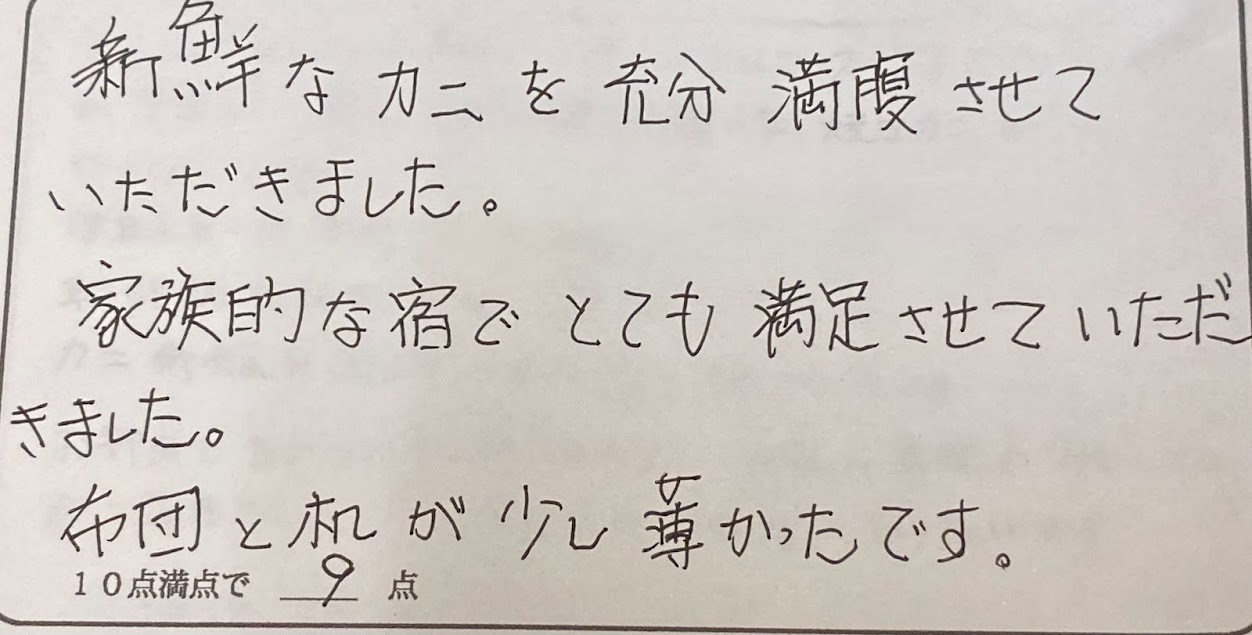 新鮮なカニを充分満腹させて
いただきました。
家族的な宿でとても満足させていただ
きました。
布団と机が少し薄かったです。
10点満点で 9 点